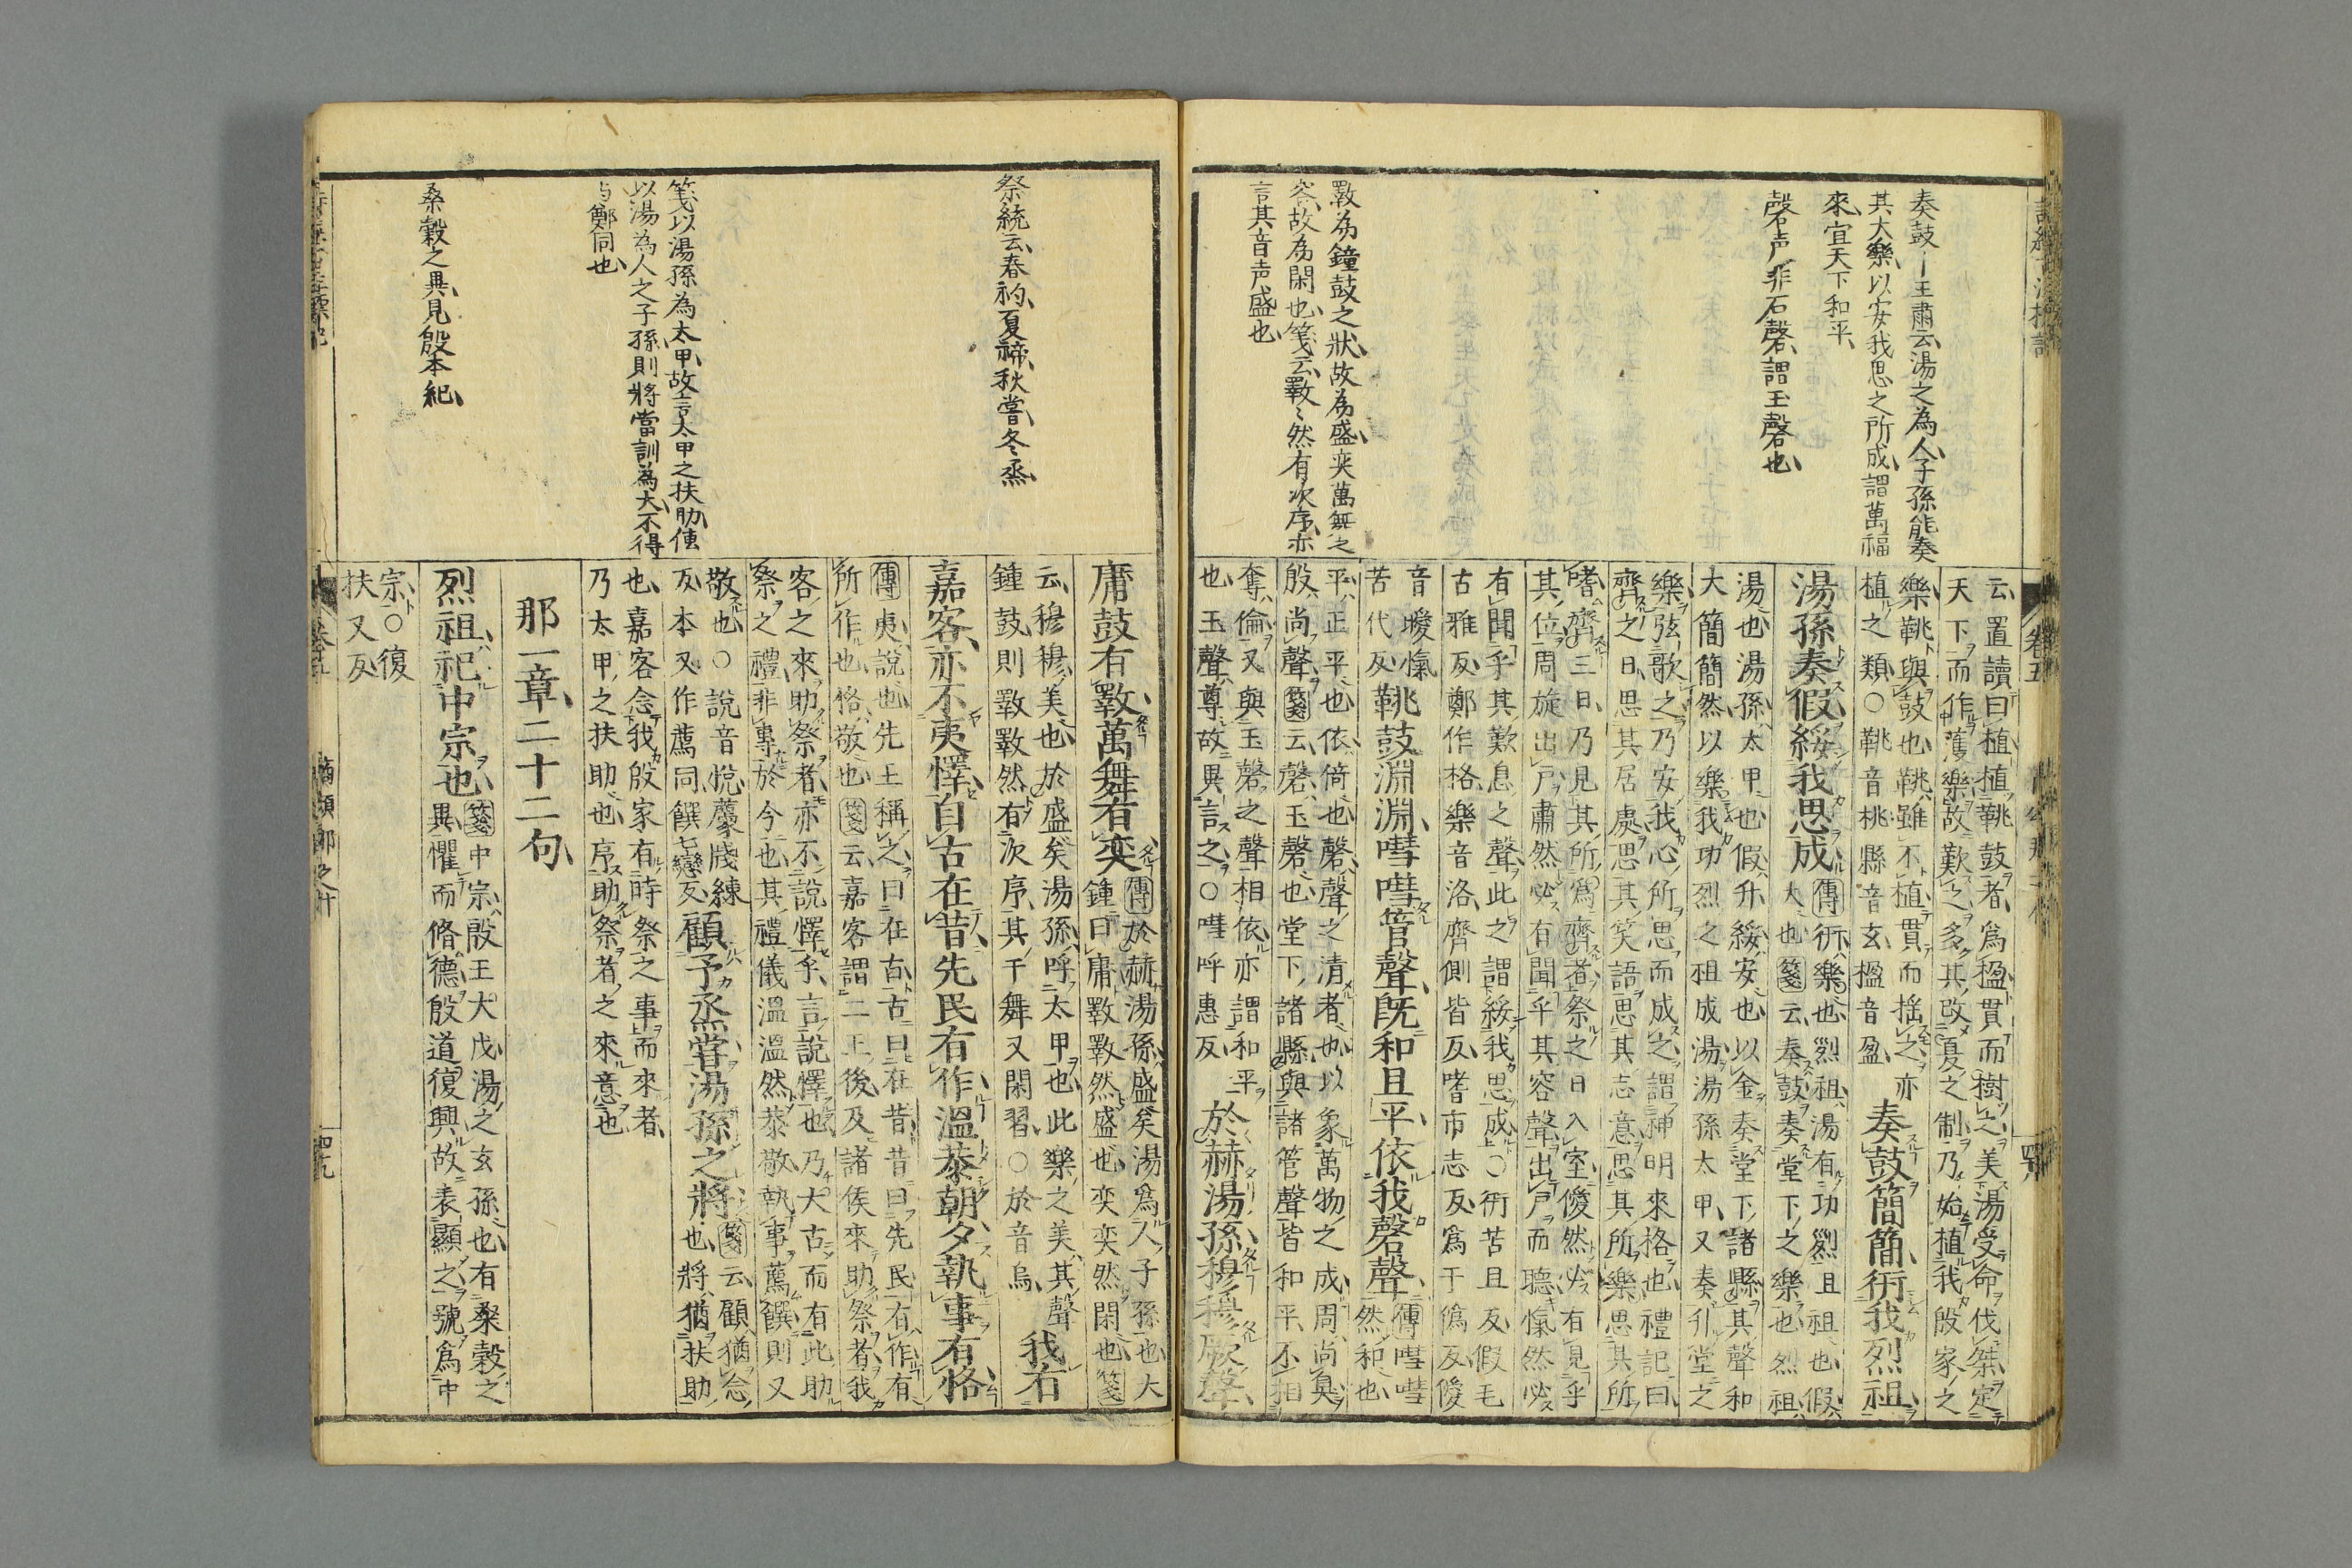 奏鼓〡王肅云湯之為人子孫能奏
其大樂以安我思之所成謂萬福
來宜天下和平
磬声非石磬謂玉磬也
斁為鐘鼓之狀故為盛奕萬舞之
容故為閑也箋云斁〻然有次序亦
言其音声盛也
云置讀曰植植鞉鼓者爲楹貫而樹之美湯受命伐桀定
天下而作濩樂故歎之多其改夏之制乃始植我殷家之
樂鞉與鼓也鞉雖不植貫而揺之亦
植之類○鞉音桃縣音玄楹音盈
奏鼓簡簡衎我烈祖
湯孫奏假綏我思成
傳衎樂也烈祖湯有功烈且祖也假
大也箋云奏鼓奏堂下之樂也烈祖
湯也湯孫太甲也假升綏安也以金奏堂下諸縣其聲和
大簡簡然以樂我功烈之祖成湯湯孫太甲又奏升堂之
樂弦歌之乃安我心所思而成之謂神明來格也禮記曰
齊之日思其居處思其笑語思其志意思其所樂思其所
嗜齊三日乃見其所爲齊者祭之日入室僾然必有見乎
其位周旋出戸肅然必有聞乎其容聲出戸而聽愾然必
有聞乎其歎息之聲此之謂綏我思成○衎苦且反假毛
古雅反鄭作格樂音洛齊側皆反嗜市志反爲于僞反僾
音曖愾
苦代反
鞉鼓淵淵嘒嘒管聲既和且平依我磬聲
傳嘒嘒
然和也
平正平也依倚也磬聲之清者也以象萬物之成周尚臭
殷尚聲箋云磬玉磬也堂下諸縣與諸管聲皆和平不相
奪倫又與玉磬之聲相依亦謂和平
也玉聲尊故異言之○嘒呼惠反
於赫湯孫穆穆厥聲
祭統云春礿夏禘秋嘗冬烝
箋以湯孫為太甲故言太甲之扶助傳
以湯為人之子孫則將當訓為大不得
与鄭同也
桑穀之異見殷本紀
庸鼓有斁萬舞有奕
傳於赫湯孫盛矣湯爲人子孫也大
鍾曰庸斁斁然盛也奕奕然閑也箋
云穆穆美也於盛矣湯孫呼太甲也此樂之美其聲
鍾鼓則斁斁然有次序其干舞又閑習○於音烏
我有
嘉客亦不夷懌自古在昔先民有作溫恭朝夕執事有恪
傳夷說也先王稱之曰在古古曰在昔昔曰先民有作有
所作也恪敬也箋云嘉客謂二王後及諸侯來助祭者我
客之來助祭者亦不說懌乎言說懌也乃大古而有此助
祭之禮非專於今也其禮儀溫溫然恭敬執事薦饌則又
敬也○說音悅麆牋練
反本又作薦同饌士戀反
顧予烝嘗湯孫之將
箋云顧猶念
也將猶扶助
也嘉客念我殷家有時祭之事而來者
乃太甲之扶助也序助祭者之來意也
那一章二十二句
烈祖祀中宗也
箋中宗殷王大戊湯之玄孫也有桑穀之
異懼而脩德殷道復興故表顯之號爲中
宗○復
扶又反